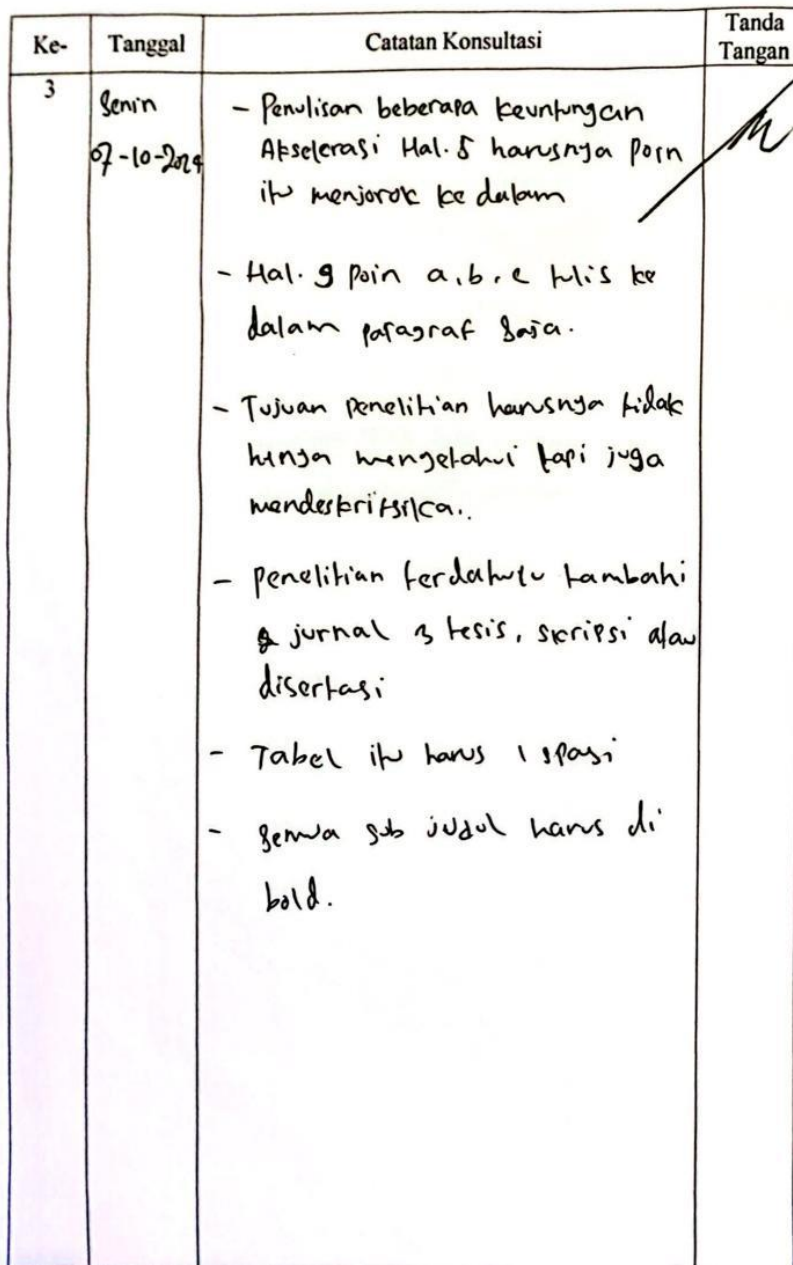 Ke- Tanggal Catatan Konsultasi Tanda Tangan
3
Senin
07-10-2024
- Penulisan beberapa keuntungan
Akselerasi Hal. 5 harusnya Poin
itu menjorok ke dalam
- Hal. 9 poin a, b, c tulis ke
dalam paragraf saja.
- Tujuan penelitian harusnya tidak
hanya mengetahui tapi juga
mendeskripsika..
- penelitian terdahulu tambahi
jurnal 3 tesis, skripsi atau
disertasi
- Tabel itu harus 1 spasi
- semua sub judul harus di
bold.